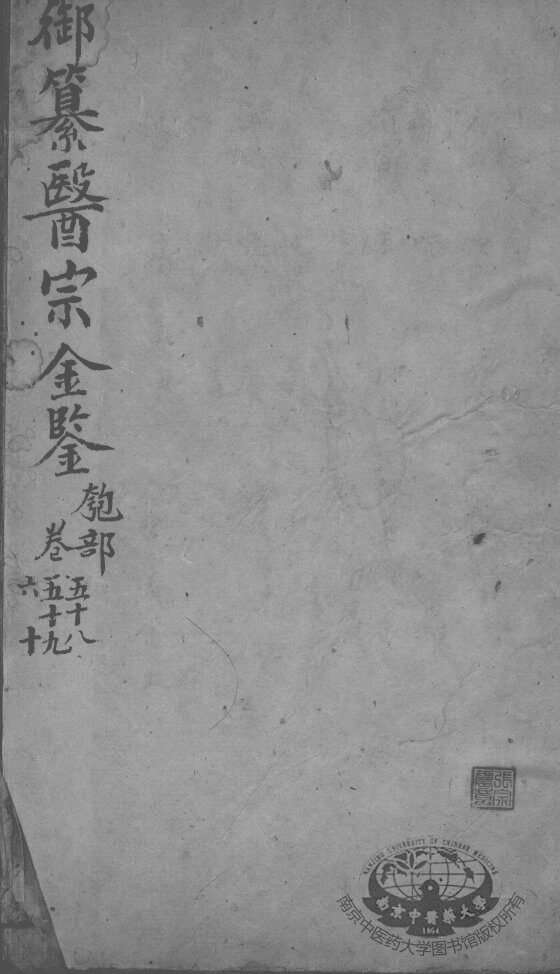 御纂醫宗金鑒
匏部
卷五十八
五十九
六十
張宗
NANJING UNIVERSITY OF CHINESE MEDICINE
南京中醫藥大學
1954
南京中医药大学图书馆版权所有